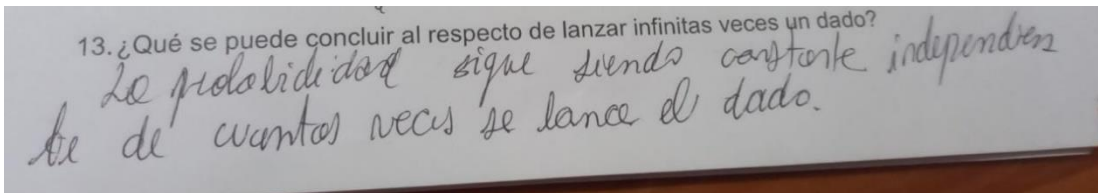 13. ¿Qué se puede concluir al respecto de lanzar infinitas veces un dado?
La probabilididad sigue siendo constante independien
te de cuantas veces se lance el dado.